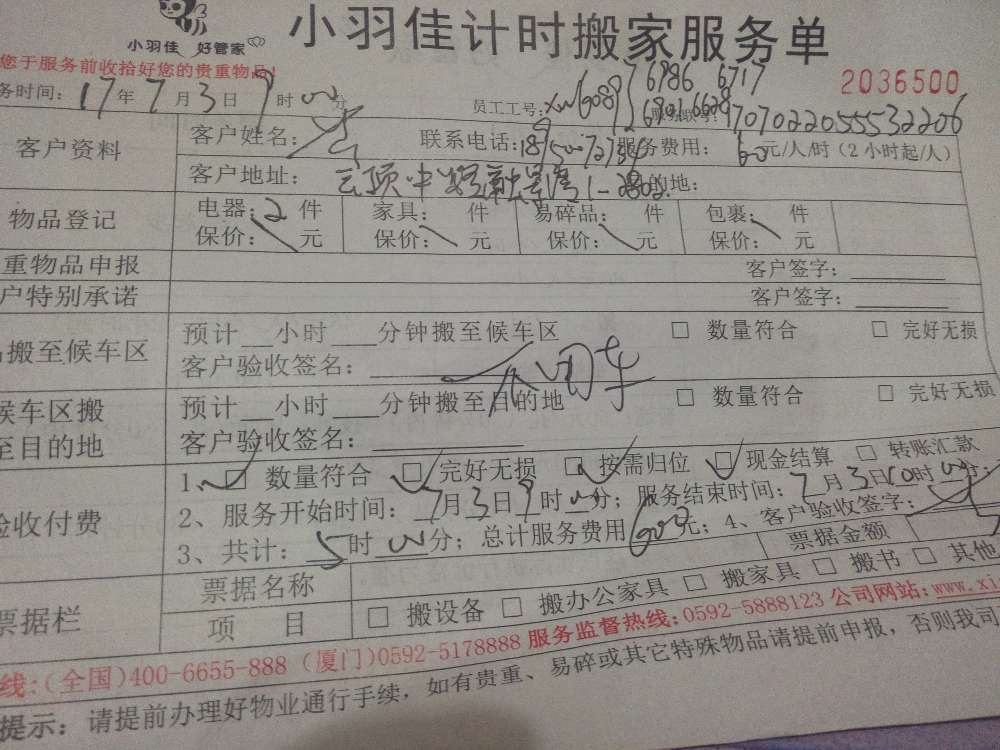 小羽佳计时搬家服务单
小羽佳 好管家
您于服务前收拾好您的贵重物品!
2036500
务时间: 17年7月3日9时00分
员工工号: 76986 6717
服务联单: 1707022055532206
客户资料
客户姓名: 联系电话: 服务费用: 60元/人/时 (2小时起/人)
客户地址: 目的地:
物品登记
电器: 2件 家具: 件 易碎品: 件 包裹: 件
保价: 元 保价: 元 保价: 元 保价: 元
重物品申报 客户签字:
户特别承诺 客户签字:
搬至候车区
预计 小时 分钟搬至候车区 □ 数量符合 □ 完好无损
客户验收签名: 不用车
候车区搬
至目的地
预计 小时 分钟搬至目的地 □ 数量符合 □ 完好无损
客户验收签名:
验收付费
1、☑ 数量符合 ☑ 完好无损 ☑ 按需归位 ☑ 现金结算 □ 转账汇款
2、服务开始时间: 7月3日9时00分; 服务结束时间: 7月3日10时00分;
3、共计: 5时00分; 总计服务费用600元; 4、客户验收签字:
票据栏
票据名称 票据金额
项 目 □ 搬设备 □ 搬办公家具 □ 搬家具 □ 搬书 □ 其他
线:(全国)400-6655-888 (厦门)0592-5178888 服务监督热线:0592-5888123 公司网站:www.xi
提示: 请提前办理好物业通行手续, 如有贵重、易碎或其它特殊物品请提前申报, 否则我司